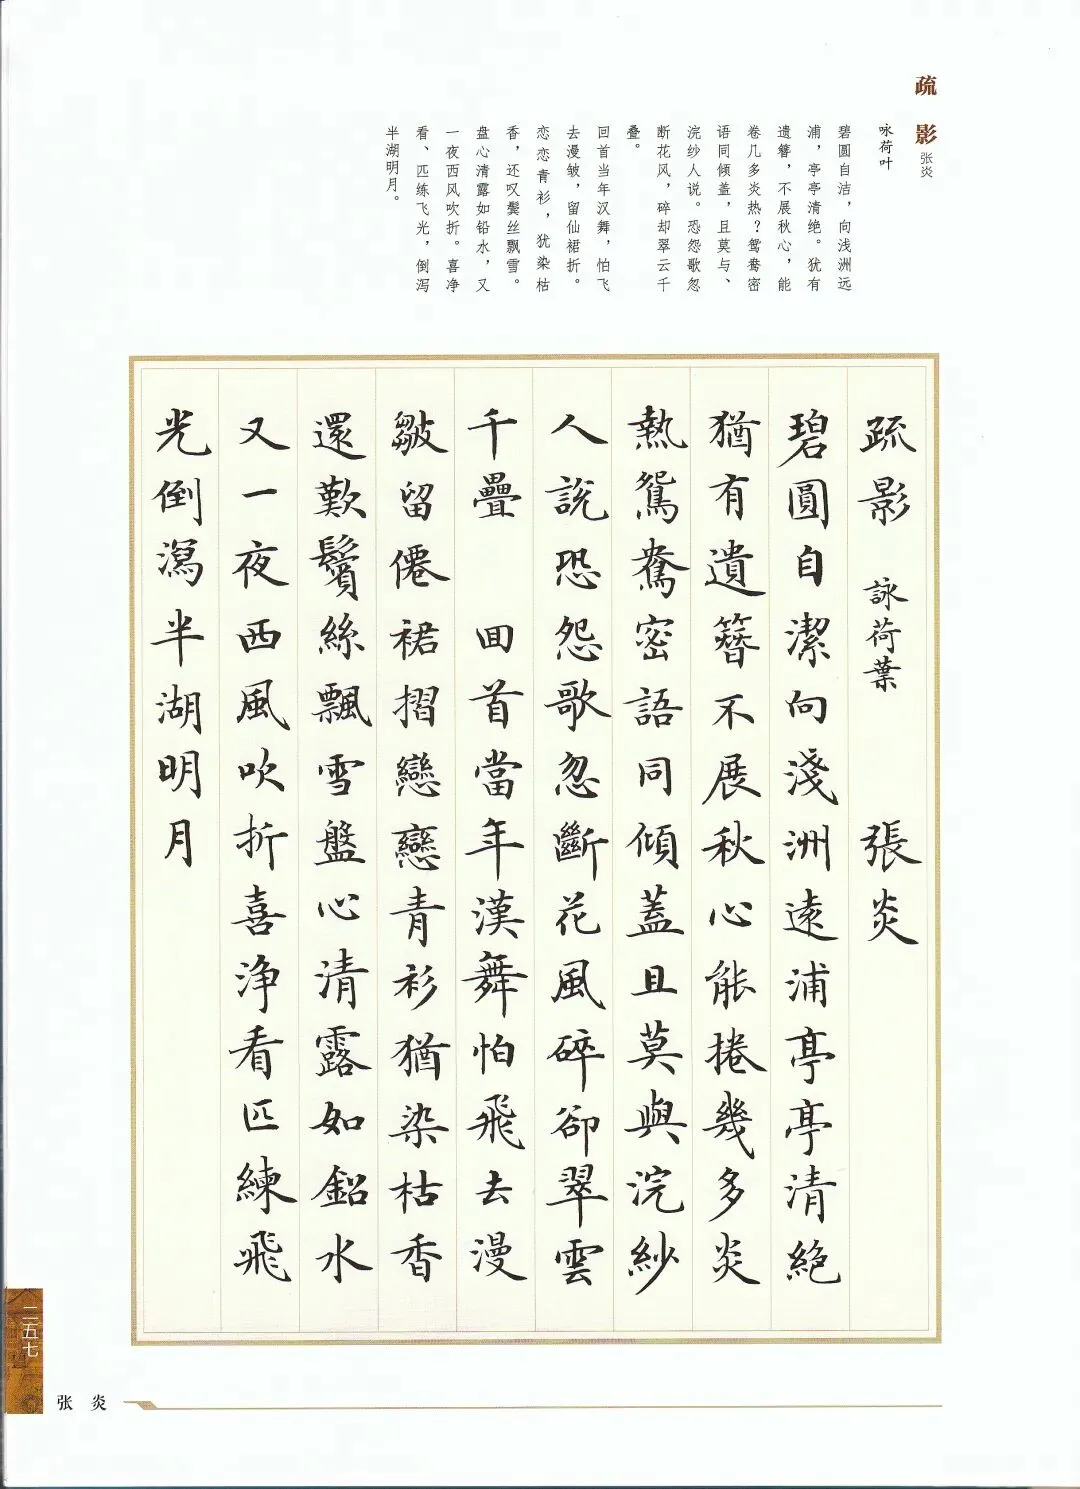 疏影
张炎
咏荷叶
碧圆自洁，向浅洲远
浦，亭亭清绝。犹有
遗簪，不展秋心，能
卷几多炎热？鸳鸯密
语同倾盖，且莫与、
浣纱人说。恐怨歌忽
断花风，碎却翠云千
叠。
回首当年汉舞，怕飞
去漫皱，留仙裙折。
恋恋青衫，犹染枯
香，还叹鬓丝飘雪。
盘心清露如铅水，又
一夜西风吹折。喜净
看、匹练飞光，倒泻
半湖明月。
疏影 詠荷葉 張炎
碧圓自潔向淺洲遠浦亭亭清絕
猶有遺簪不展秋心能捲幾多炎
熱鴛鴦密語同傾蓋且莫與浣紗
人說恐怨歌忽斷花風碎卻翠雲
千疊 回首當年漢舞怕飛去漫
皺留僊裙摺戀戀青衫猶染枯香
還歎鬢絲飄雪盤心清露如鉛水
又一夜西風吹折喜淨看匹練飛
光倒瀉半湖明月
二五七
张炎